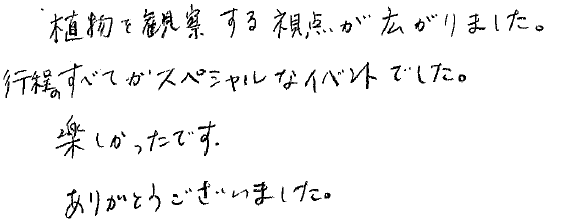 植物を観察する視点が広がりました。
行程のすべてがスペシャルなイベントでした。
楽しかったです.
ありがとうございました。